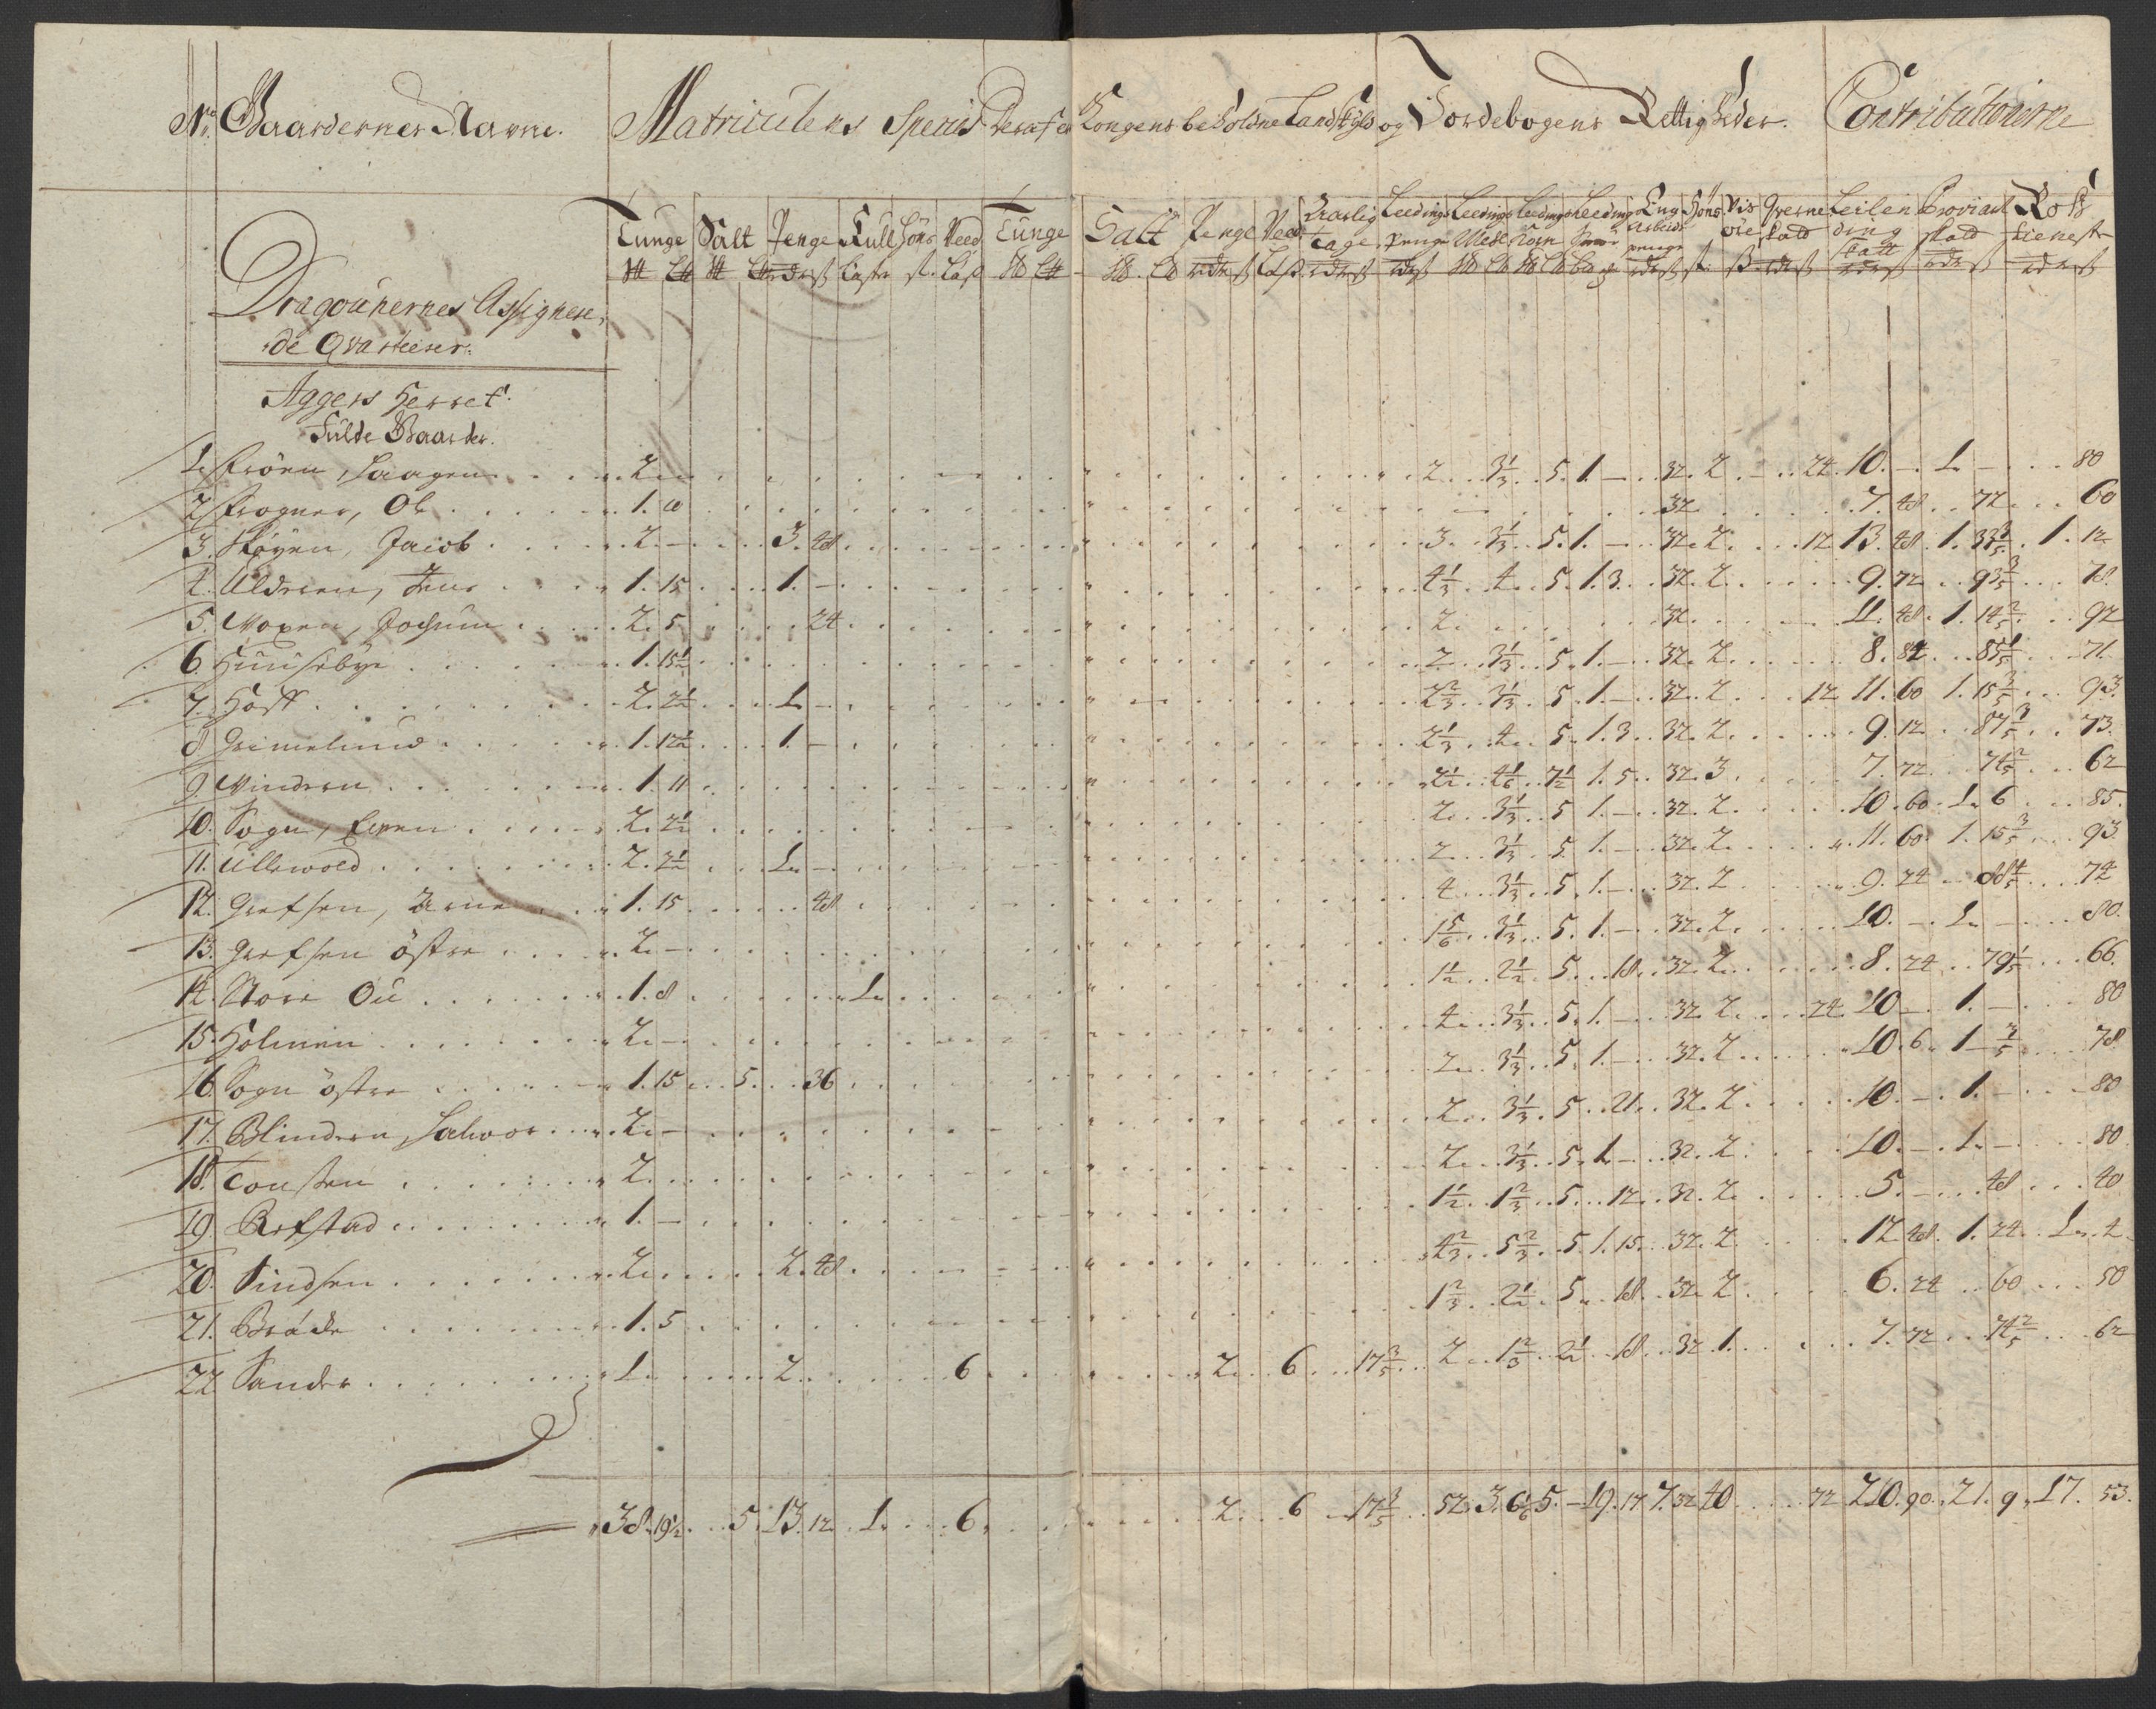 No. Gaardernes Navne. Matriculens Specie Deraf er Kongens beholdne Landskyld og Jordebogens Rettigheder. Contributionerne
Tunge Salt Penge Hull Höns Veed Tunge Salt Penge Veed Aarlig tage Leedings penge Leedings Meel Leedings Korn Leeding Eng Arbeids penge Höns Vis öre Qverne skatt Leilending skatt Proviant skatt Ross tieneste
Dragounernes Assignere,
de Qvarteerer.
Aggers Herret.
Fulde Gaarder.
1. Fröen, Haagen 2. 2 3 1/3 5. 1. – 32. 2 – 24. 10. – 1. – 80
2 Frogner, Ole 1. 10 32 7. 48 72 60
3. Skøyen, Jacob 2. – 3. 48 3. 3 1/3 5. 1. – 32. 2. 12 13. 48. 1. 33 3/5 1. 12
4. Uldreen, Jens 1. 15 1. – 4 1/3 4. 5. 1. 3. 32. 2 9. 72 93 3/5 78.
5. Voxen, Jochum 2. 5 24 2. 32 11. 48. 1. 14 2/5 92
6. Huuseby 1. 15 1/2 2 3 1/3 5. 1. – 32. 2 8. 84 85 1/5 71
7. Hoff 2. 2 1/2 1. – 2 2/3 3 1/3 5. 1. – 32. 2 12 11. 60 1. 15 3/5 93.
8 Grimelund 1. 12 1/2 1. – 2 1/3 4. 5. 1. 3. 32. 2. 9. 12 87 3/5 73.
9 Vindern 1. 11 2 1/2 4 1/6 7 1/2 1. 5. 32. 3 7. 72 74 2/5 62
10. Sogn, Even 2. 2 1/2 2. 3 1/3 5 1. – 32. 2. 10. 60. 1. 6 85.
11. Ullewold 2. 2 1/2 1. – 2 3 1/3 5. 1. – 32. 2. 11. 60. 1. 15 3/5 93
12. Grefsen, Arne 1. 15 48 4 3 1/3 5. 1. – 32. 2 9. 24 88 4/5 74
13. Grefsen östre 2. – 1 5/6 3 1/3 5. 1. – 32. 2. 10. – 1. – 80.
14. Store Ou 1. 8 1. 1 1/2 2 1/2 5. 18. 32. 2. 8. 24 79 1/5 66.
15. Holmen 2. – 4 3 1/3 5. 1. – 32. 2. 24. 10 – 1. – 80
16. Sogn östre 1. 15 5. 36 2. 3 1/3 5. 1. – 32. 2 10. 6. 1 – 2/5 78
17. Blindern, Halvor 2. – 2. 3 1/3 5. 21. 32. 2. 10. – 1. – 80
18. Tonsen 2. 2. 3 1/3 5. 1. – 32. 2. 10. – 1. – 80
19. Refstad 1. – 1 1/2 1 2/3 5. 12. 32. 2. 5. – 48 40
20. Sindsen 2. 2. 48 4 2/3 5 2/3 5. 1. 15. 32. 2. 12. 48. 1. 24. 1. 4
21. Bråde 1. 5 1 2/3 2 1/2 5. 18. 32. 2. 6. 24 60 50
22 Sander 1. 2 6 2. 6 17 3/5 2 1 2/3 2 1/2 18. 32. 1. 7. 72 74 2/5 62
38. 19 1/2 5. 13. 12. 1. 6. 2. 6 17 3/5 52. 3. 6 1/6 5. – 19. 17 7. 32 40 72 210. 90. 21. 9. 17. 53.